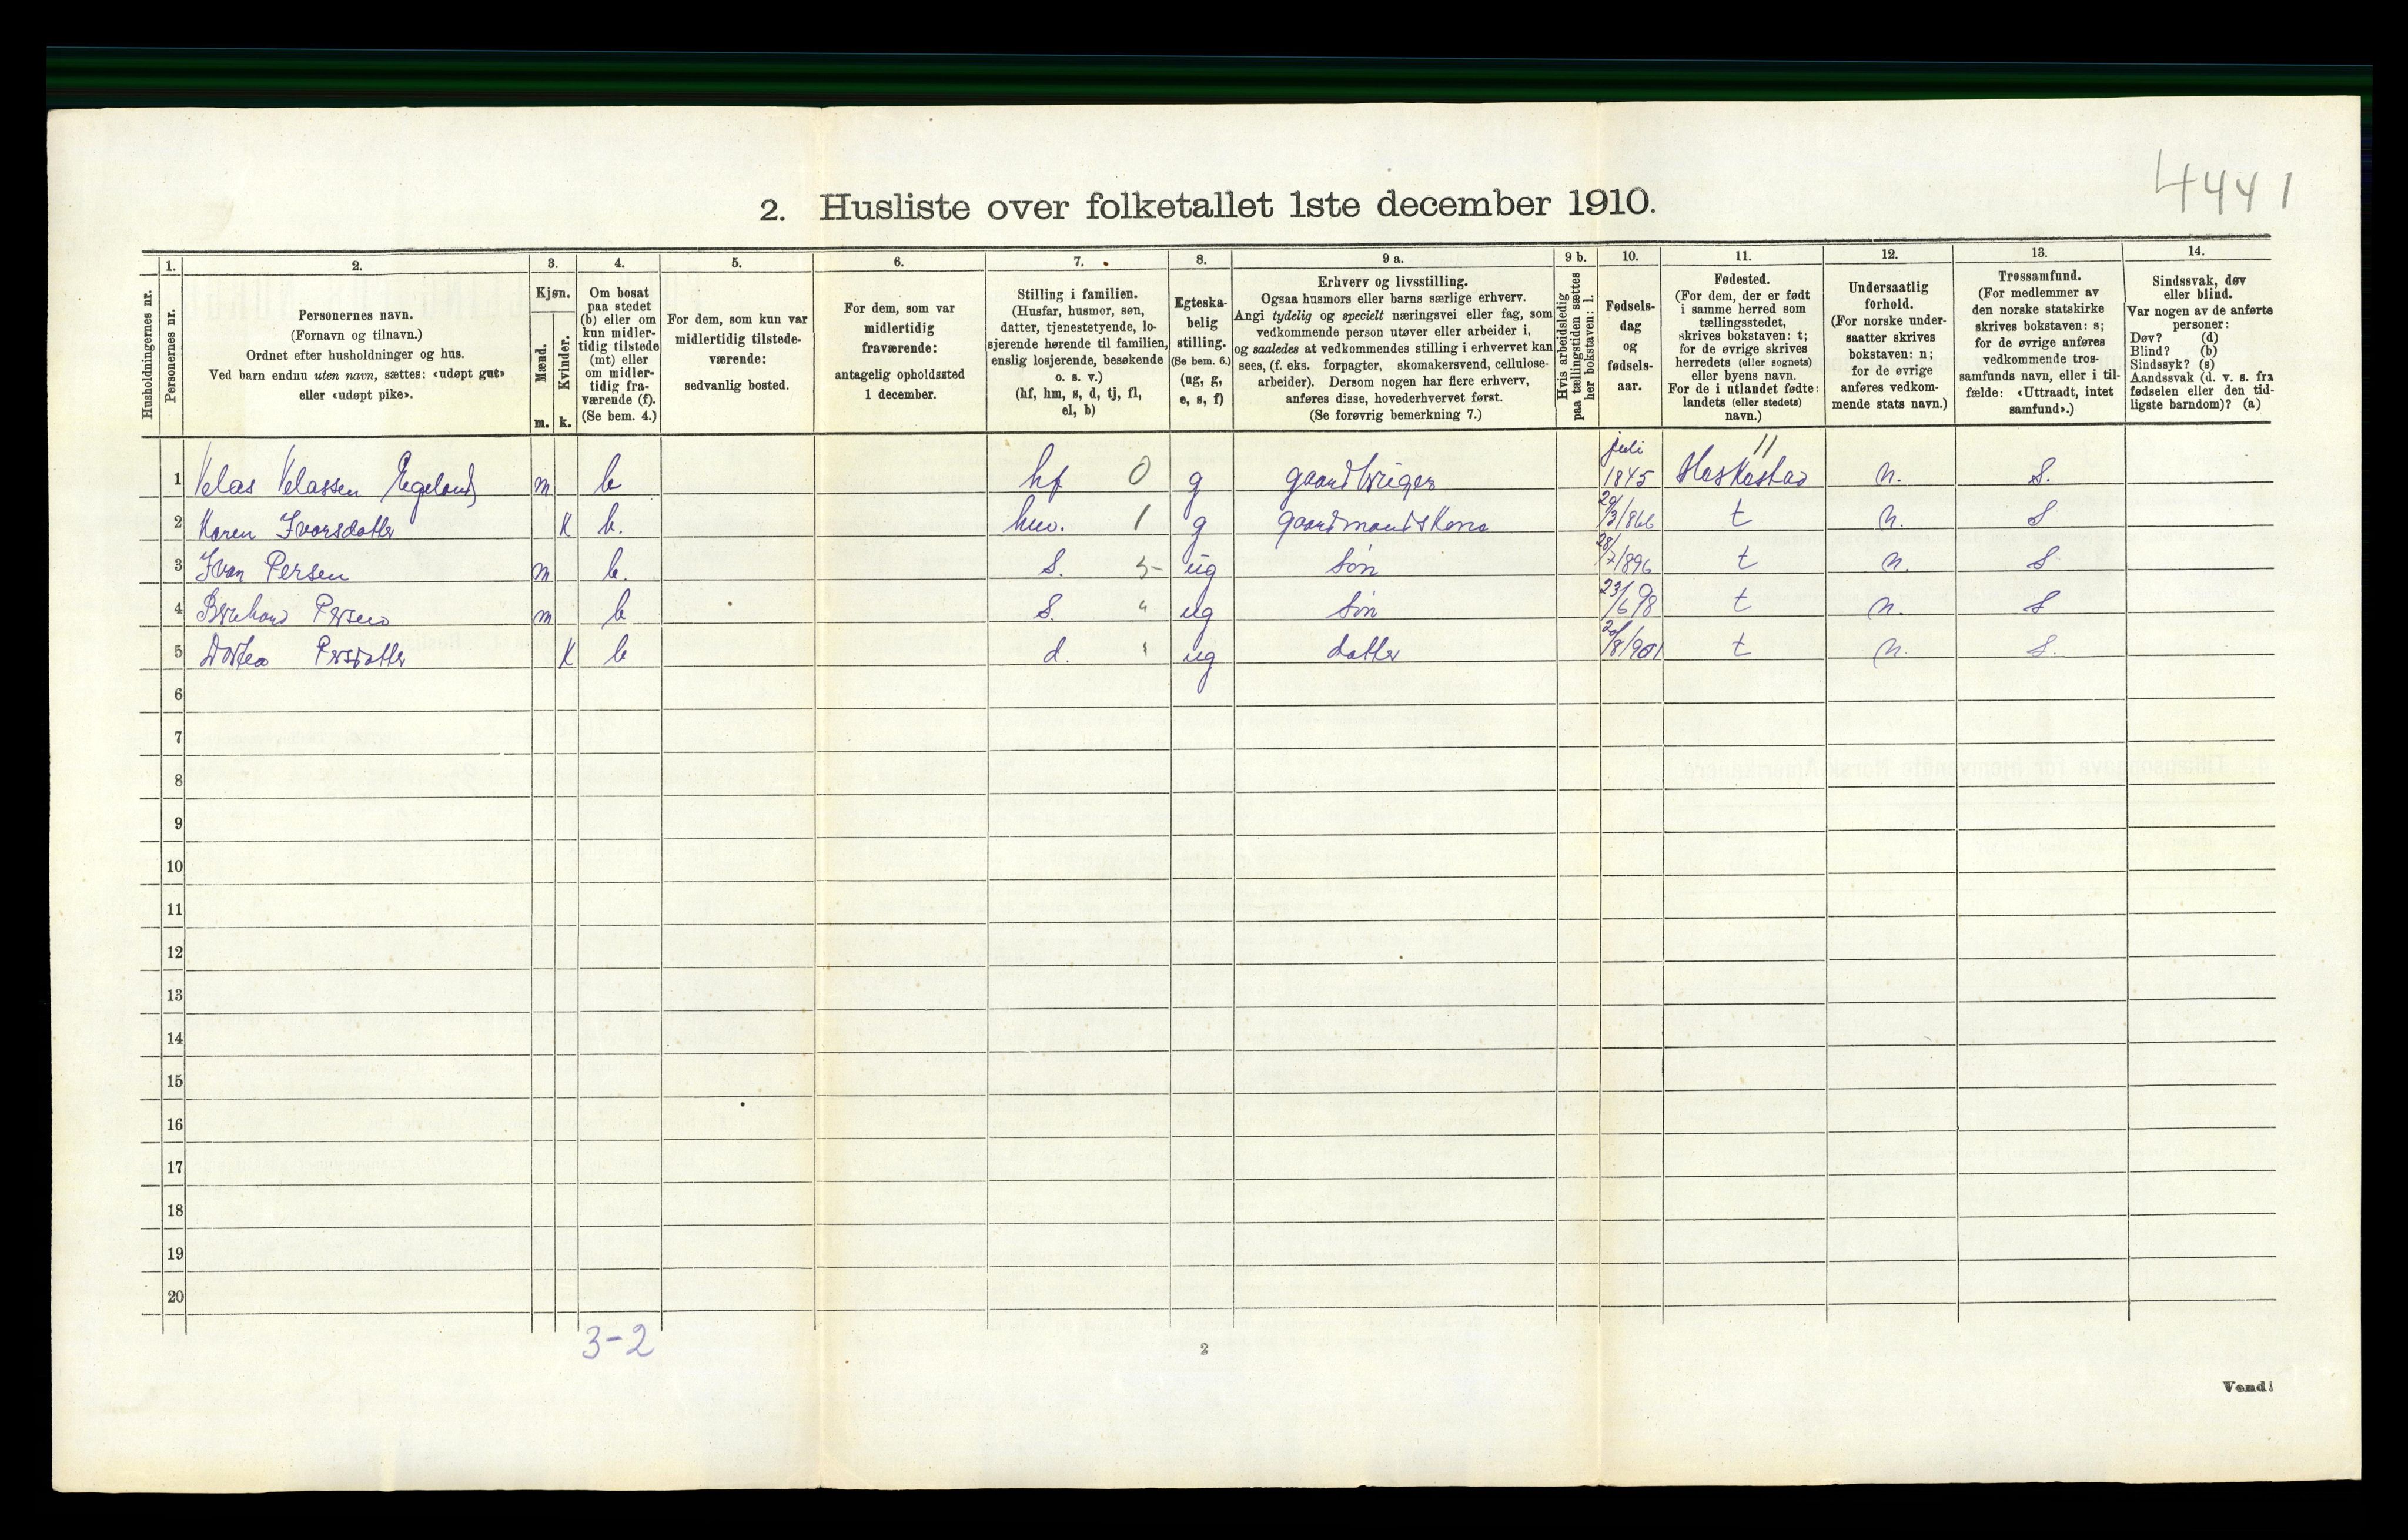 4441
2. Husliste over folketallet 1ste december 1910.
Husholdningernes nr.
1.
Personernes nr.
2.
Personernes navn.
(Fornavn og tilnavn.)
Ordnet efter husholdninger og hus.
Ved barn endnu uten navn, sættes: «udøpt gut»
eller «udøpt pike».
3.
Kjøn.
Mænd.
Kvinder.
m. k.
4.
Om bosat
paa stedet
(b) eller om
kun midler-
tidig tilstede
(mt) eller
om midler-
tidig fra-
værende (f).
(Se bem. 4.)
5.
For dem, som kun var
midlertidig tilstede-
værende:
sedvanlig bosted.
6.
For dem, som var
midlertidig
fraværende:
antagelig opholdssted
1 december.
7.
Stilling i familien.
(Husfar, husmor, søn,
datter, tjenestetyende, lo-
sjerende hørende til familien,
enslig losjerende, besøkende
o. s. v.)
(hf, hm, s, d, tj, fl,
el, b)
8.
Egteska-
belig
stilling.
(Se bem. 6.)
(ug, g,
e, s, f)
9 a.
Erhverv og livsstilling.
Ogsaa husmors eller barns særlige erhverv.
Angi tydelig og specielt næringsvei eller fag, som
vedkommende person utøver eller arbeider i,
og saaledes at vedkommendes stilling i erhvervet kan
sees, (f. eks. forpagter, skomakersvend, cellulose-
arbeider). Dersom nogen har flere erhverv,
anføres disse, hovederhvervet først.
(Se forøvrig bemerkning 7.)
9 b.
Hvis arbeidsledig
paa tællingstiden sættes
her bokstaven: l.
10.
Fødsels-
dag
og
fødsels-
aar.
11.
Fødested.
(For dem, der er født
i samme herred som
tællingsstedet,
skrives bokstaven: t;
for de øvrige skrives
herredets (eller sognets)
eller byens navn.
For de i utlandet fødte:
landets (eller stedets)
navn.)
12.
Undersaatlig
forhold.
(For norske under-
saatter skrives
bokstaven: n;
for de øvrige
anføres vedkom-
mende stats navn.)
13.
Trossamfund.
(For medlemmer av
den norske statskirke
skrives bokstaven: s;
for de øvrige anføres
vedkommende tros-
samfunds navn, eller i til-
fælde: «Uttraadt, intet
samfund».)
14.
Sindssvak, døv
eller blind.
Var nogen av de anførte
personer:
Døv? (d)
Blind? (b)
Sindssyk? (s)
Aandssvak (d. v. s. fra
fødselen eller den tid-
ligste barndom)? (a)
1 Klas Klassen Egeland m b hf 0 g gaardbruger juli 1845 11 n. S.
2 Karen Ivarsdatter K b. hm. 1 g gaardmandskone 20/3/866 t n. S
3 Ivar Persen m b. S. 5 ug søn 28/7/896 t n. S
4 Bernhard Persen m b S. " ug søn 23/6 98 t n. S
5 Dortea Persdatter K b d. " ug datter 20/8/901 t n. S.
6
7
8
9
10
11
12
13
14
15
16
17
18
19
20
3-2
2
Vend!